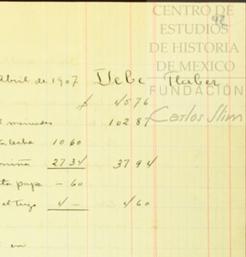 CENTRO DE
ESTUDIOS
DE HISTORIA
DE MEXICO
FUNDACIÓN
Carlos Slim
Abril de 1907 Debe Haber
$ 4576
menudos 10287
leche 10.60
27.34 3794
papa - 60
el Trigo 4 - 460
en